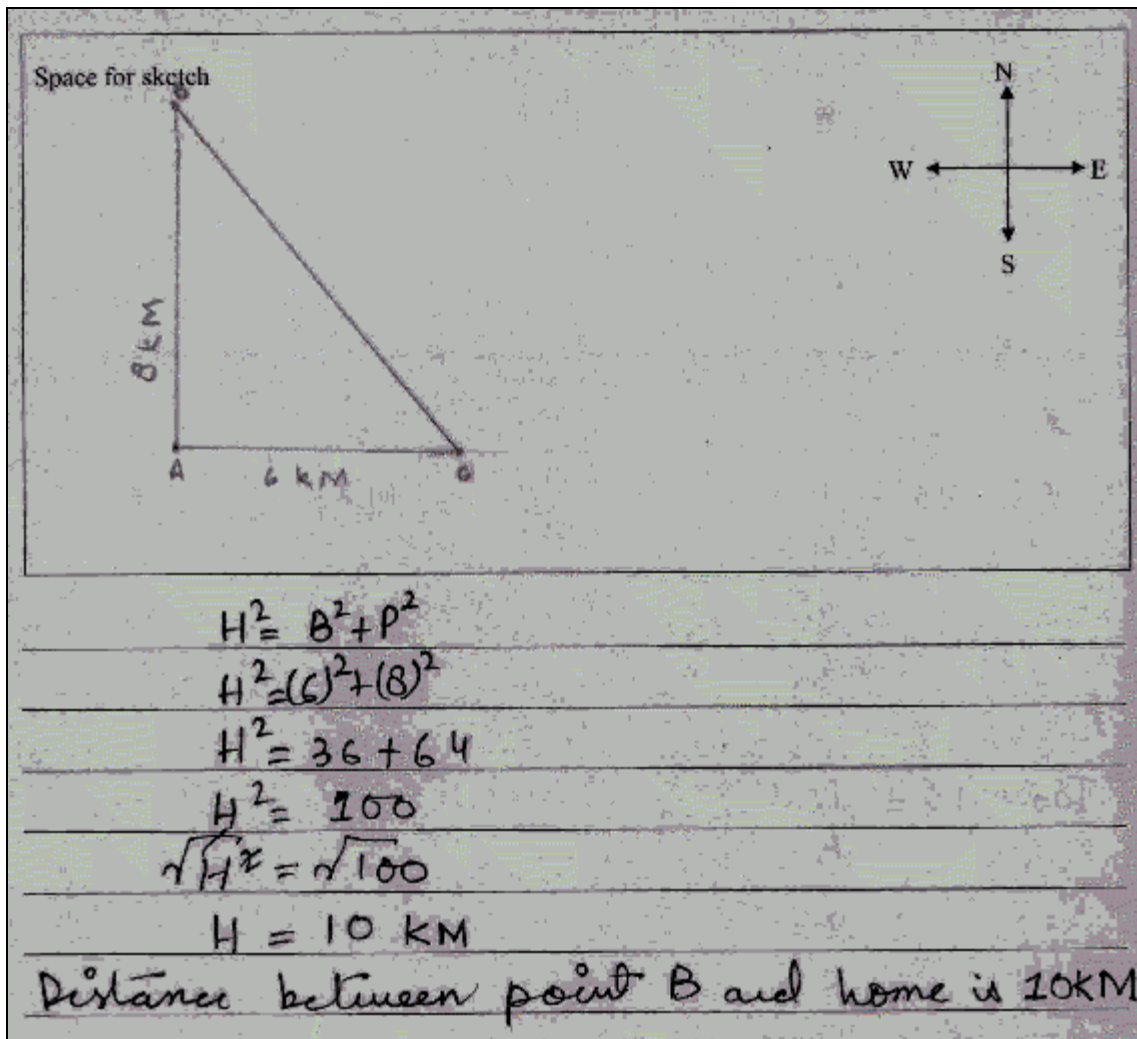 Space for sketch
N
W E
S
8 KM
A 6 KM
H² = B² + P²
H² = (6)² + (8)²
H² = 36 + 64
H² = 100
√H² = √100
H = 10 KM
Distance between point B and home is 10KM